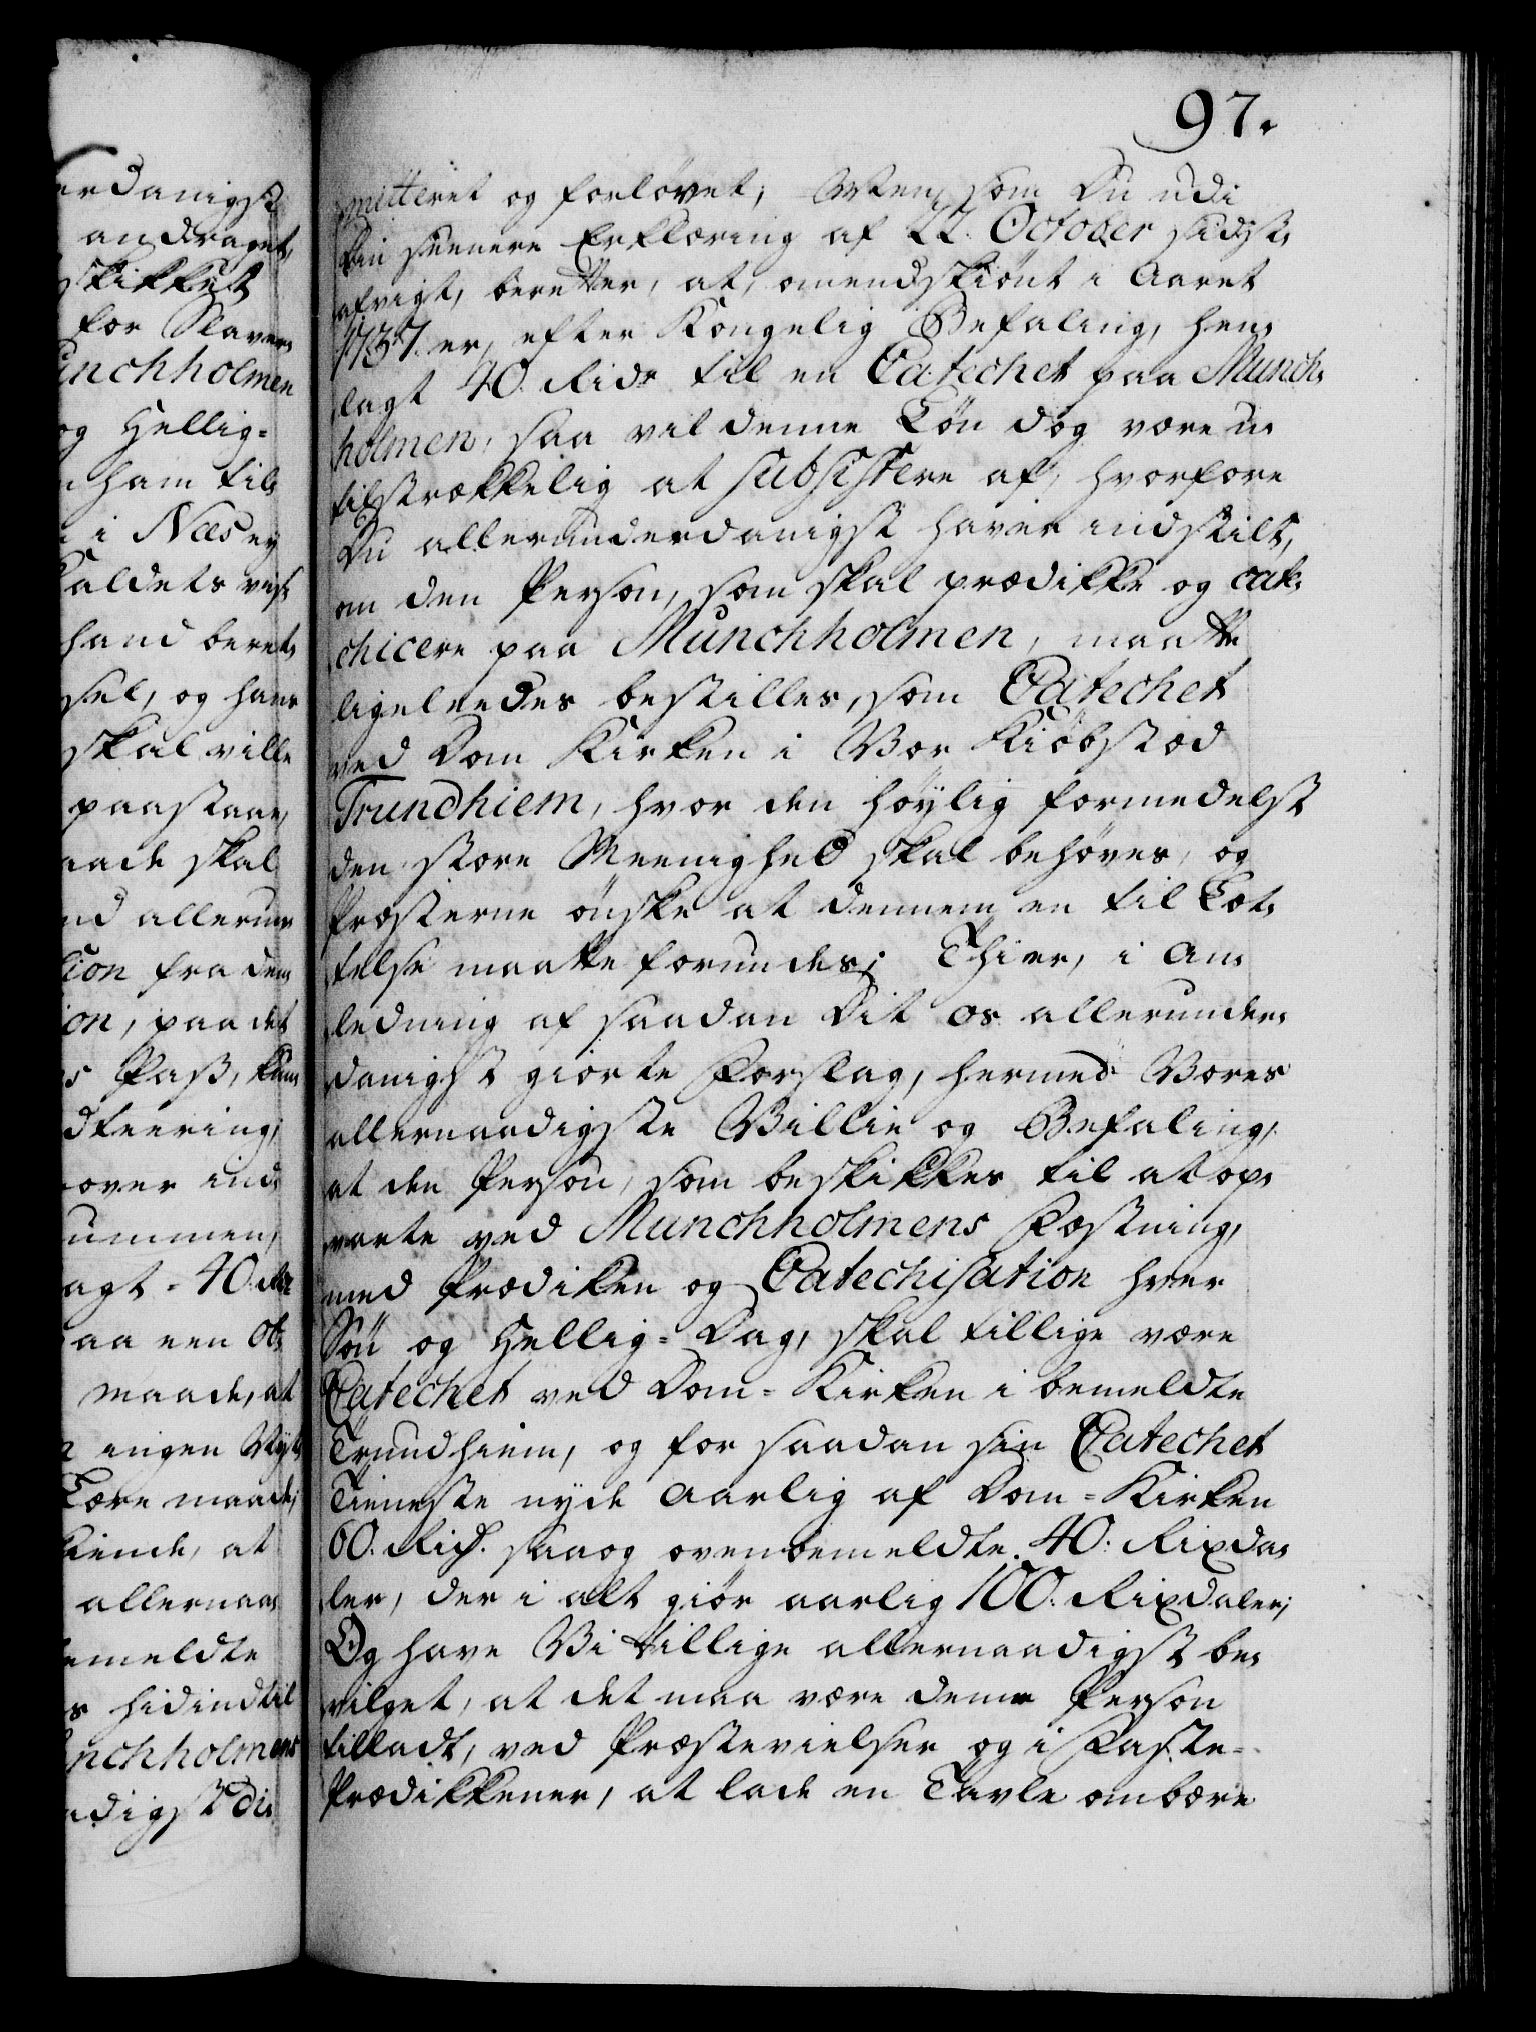 97.
mitteret og forlovet; Men som Du udi
din seenere Erklæring af 22. October sidst
afvigt, beretter, at, omendskiönt i Aaret
1737. er, efter Kongelig Befaling, hen-
lagt 40. Rdr til en Catechet paa Munch-
holmen, saa vil denne Løn dog være u-
tilstrækkelig at subsistere af, hvorfore
Du allerunderdanigst haver indstilt,
om den Person, som skal prædikke og cate-
chicere paa Munchholmen, maatte
ligeleedes bestilles, som Catechet
ved Dom Kirken i Vor Kiøbstæd
Trundhiem, hvor den høylig formedelst
den store Meenighed skal behøves, og
Præsterne ønske at dennem en til Let-
telse maatte forundes; Thi er, i An-
ledning af saadan Dit os allerunder-
danigst giorte Forslag, hermed Vores
allernaadigste Villie og Befaling,
at den Person, som beskikkes til at op-
varte ved Munchholmens Fæstning,
med Prædiken og Catechisation hver
Søn og Hellig=Dag, skal tillige være
Catechet ved Dom=Kirken i bemeldte
Trundhiem, og for saadan sin Catechet
Tieneste nyde aarlig af Dom=Kirken
60. Rdr. saa og ovenbemeldte 40. Rixda-
ler, der i alt giør aarlig 100. Rixdaler;
Og have Vi tillige allernaadigst be-
vilget, at det maa være denne Person
tilladt, ved Præstevielser og i Faste-
Prædikkener, at lade en Tavle ombære